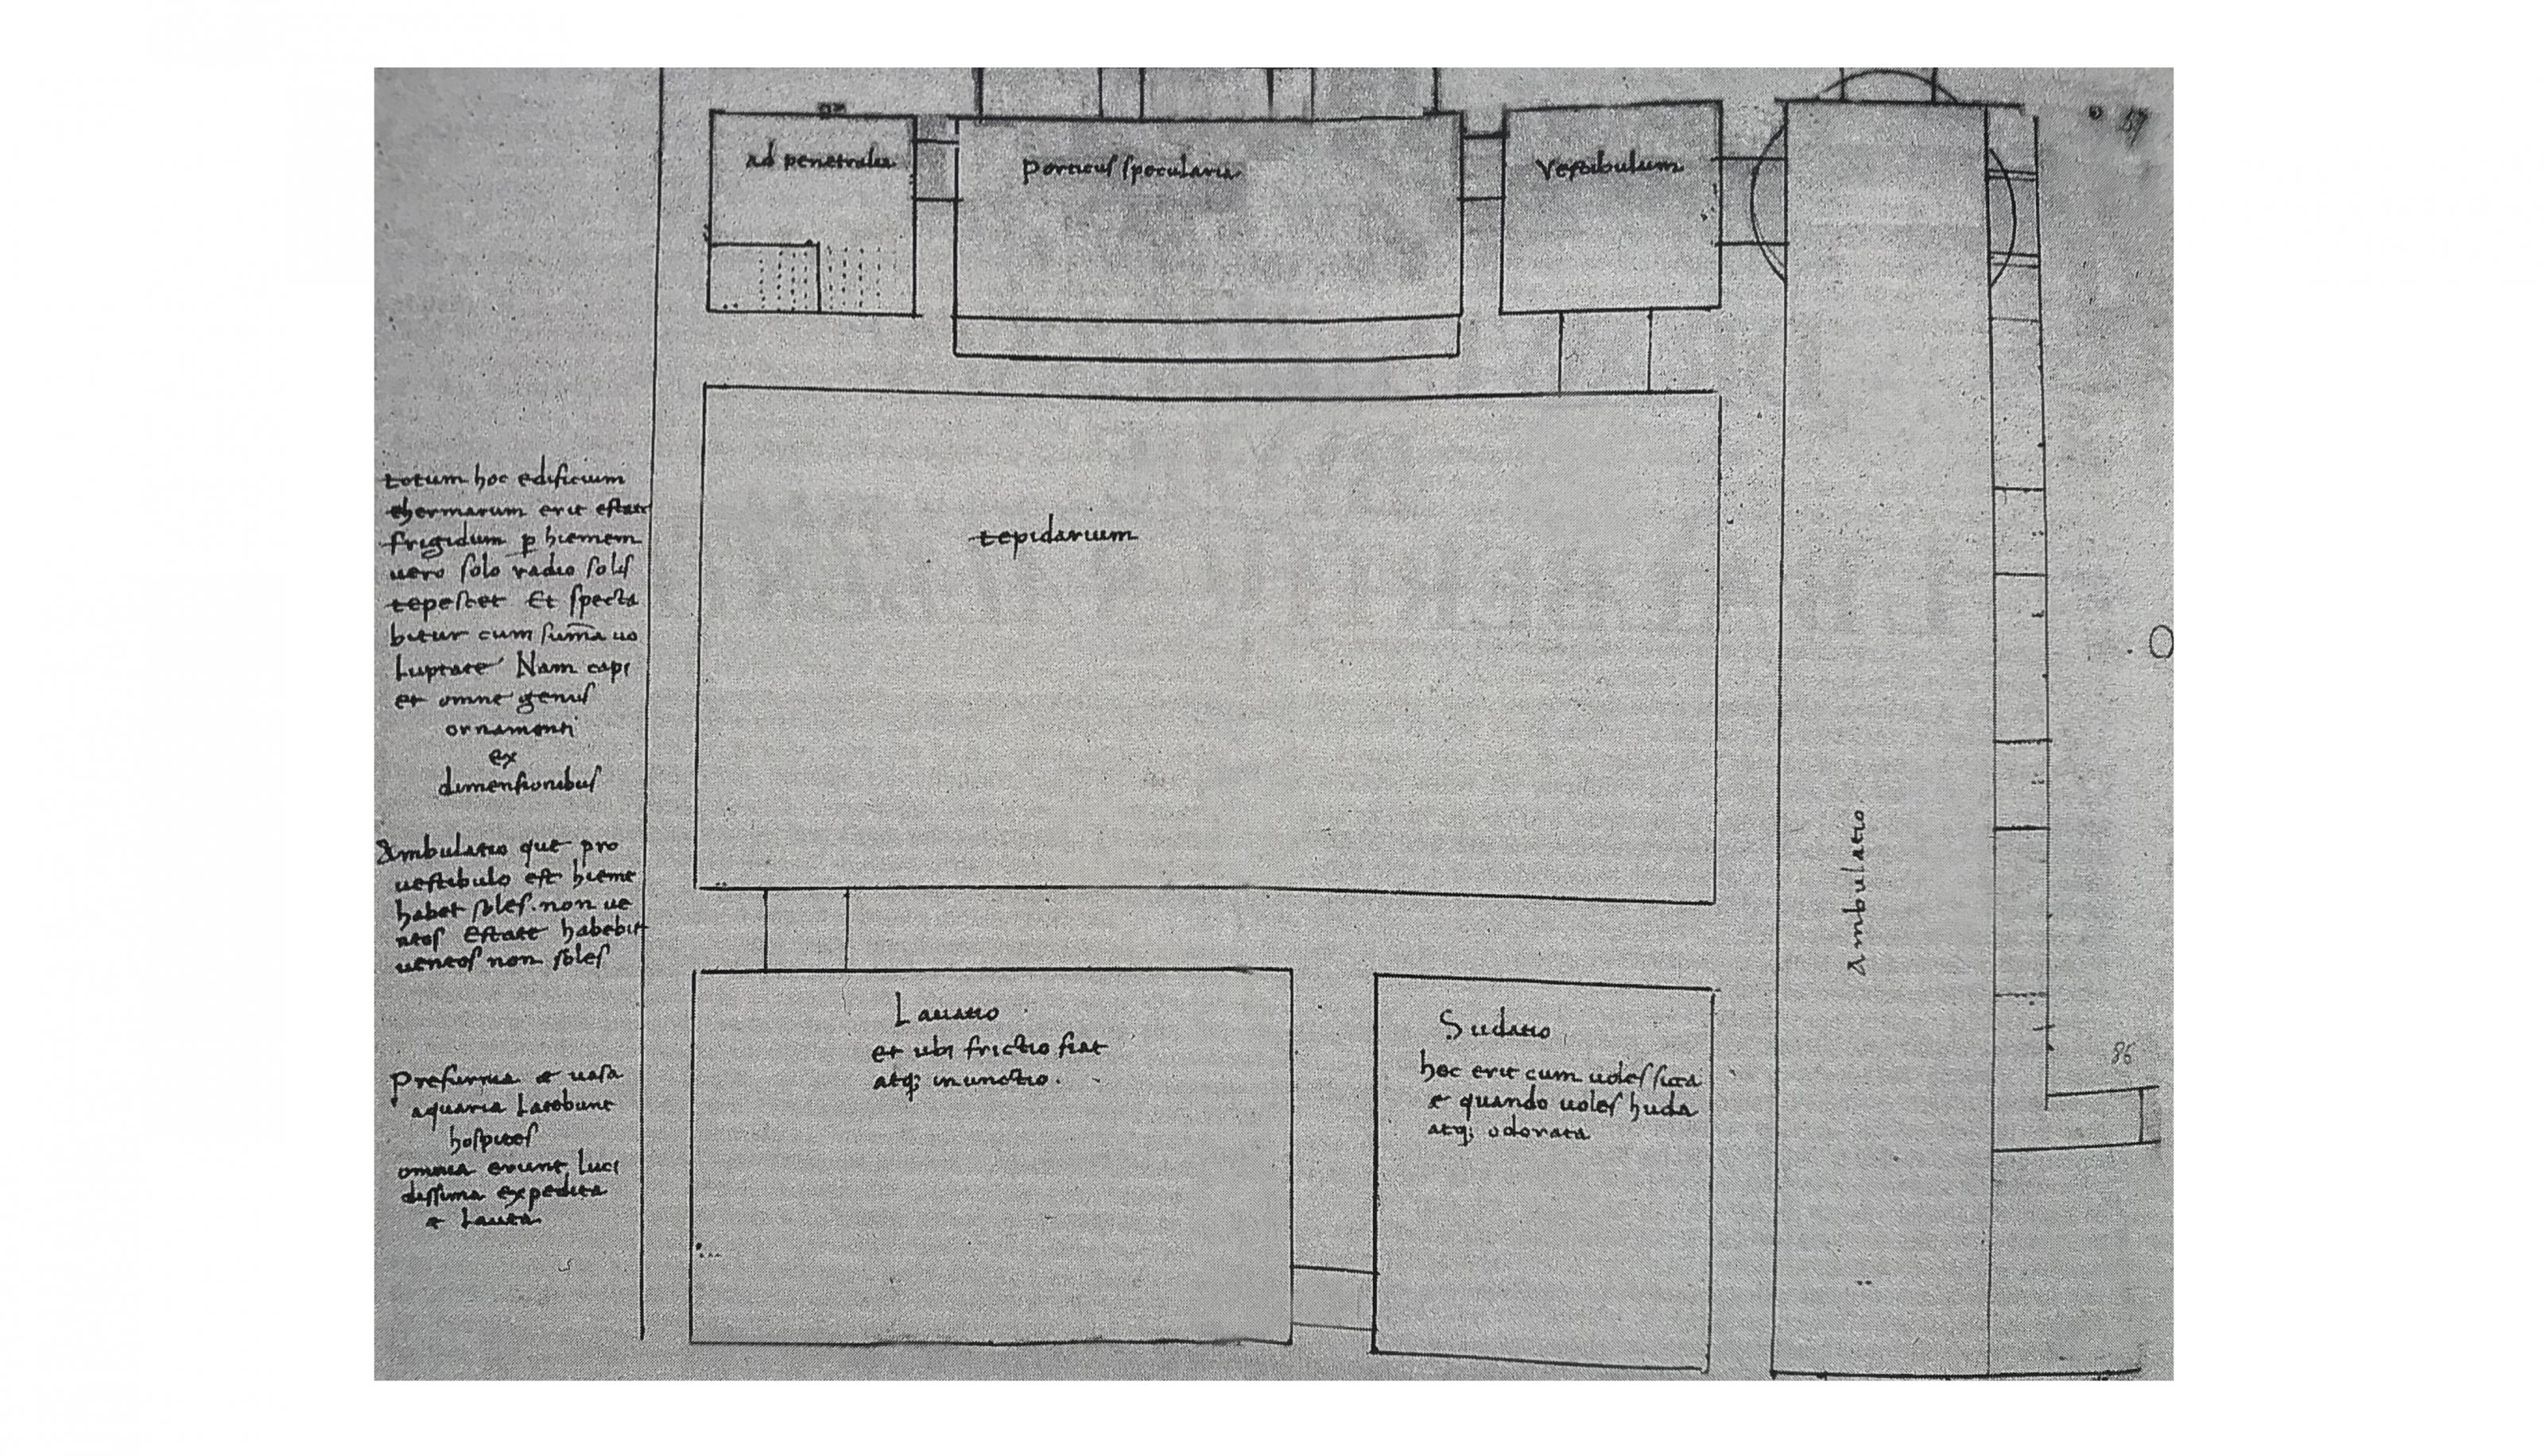 ad penetralia
Porticus specularia
Vestibulum
57
totum hoc edificium
thermarum erit estate
frigidum p hiemem
uero solo radio solis
tepescet Et specta
bitur cum suma uo
luptate Nam capi
et omne genus
ornamenti
ex
dimensionibus
tepidarium
Ambulatio que pro
uestibulo est hieme
habet soles. non ue
ntos Estate habebit
uentos non soles
Ambulatio
Prefurnia et uasa
aquaria latebunt
hospites
omnia erunt luci
dissima expedita
et lauta
Lauatio
et ubi frictio fiat
atq; inunctio.
Sudatio
hec erit cum uoles sicca
et quando uoles huda
atq; odorata
86